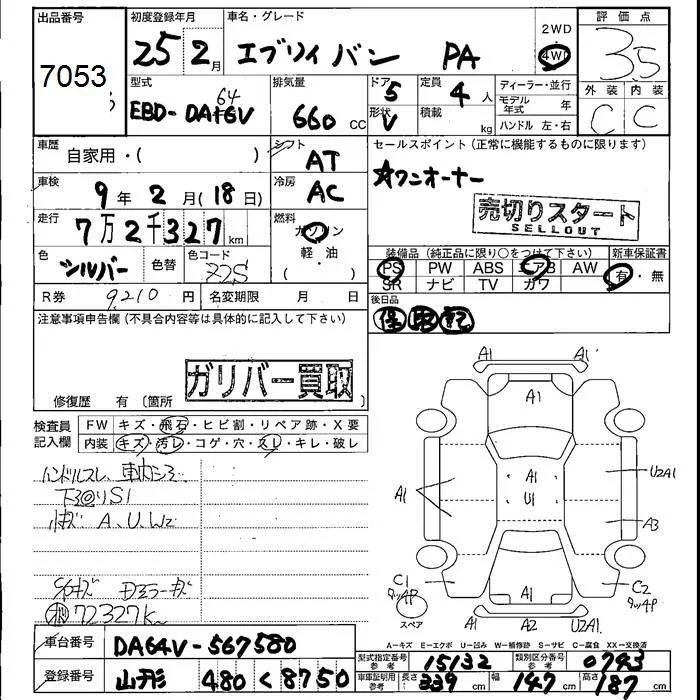 出品番号 初度登録年月 車名・グレード 2WD 評価点
7053 25年2月 エブリイバン PA 4WD 3.5
型式 排気量 ドア 定員 ディーラー・並行 外装 内装
EBD-DA64V 660cc 5 4人 モデル年式 年 C C
形状 V 積載 kg ハンドル 左・右
車歴 自家用・( ) シフト AT セールスポイント(正常に機能するものに限ります)
車検 9年2月(18日) 冷房 AC ☆ワンオーナー
走行 7万2千327km 燃料 ガソリン 売切りスタート
軽・油 SELLOUT
色 シルバー 色替 色コード Z2S ( ) 装備品(純正品に限り○をつけて下さい) 新車保証書
PS PW ABS エアB AW 有・無
SR ナビ TV カワ
R券 9210円 名変期限 月 日 後日品
注意事項申告欄(不具合内容等は具体的に記入して下さい) 保 取 記
ガリバー買取
修復歴 有(箇所
検査員 FW キズ・飛石・ヒビ割・リペア跡・X要
記入欄 内装 キズ・汚レ・コゲ・穴・スレ・キレ・破レ
ハンドルスレ、車内
下回りS1
A、U、W2
Dミラーキズ
72327k
A1 A1
A1
A1 A1 U2A1
U1
A3
C1 C2
タッチP タッチP
A1
スペア A1 A2 U2A1
A-キズ E-エクボ U-凹み W-補修跡 S-サビ C-腐食 XX-交換済
車台番号 DA64V-567580 型式指定番号 参考 15132 類別区分番号 参考 0743
登録番号 山形 480 く 8750 車庫証明用 参考 長さ 339cm 幅 147cm 高さ 187cm